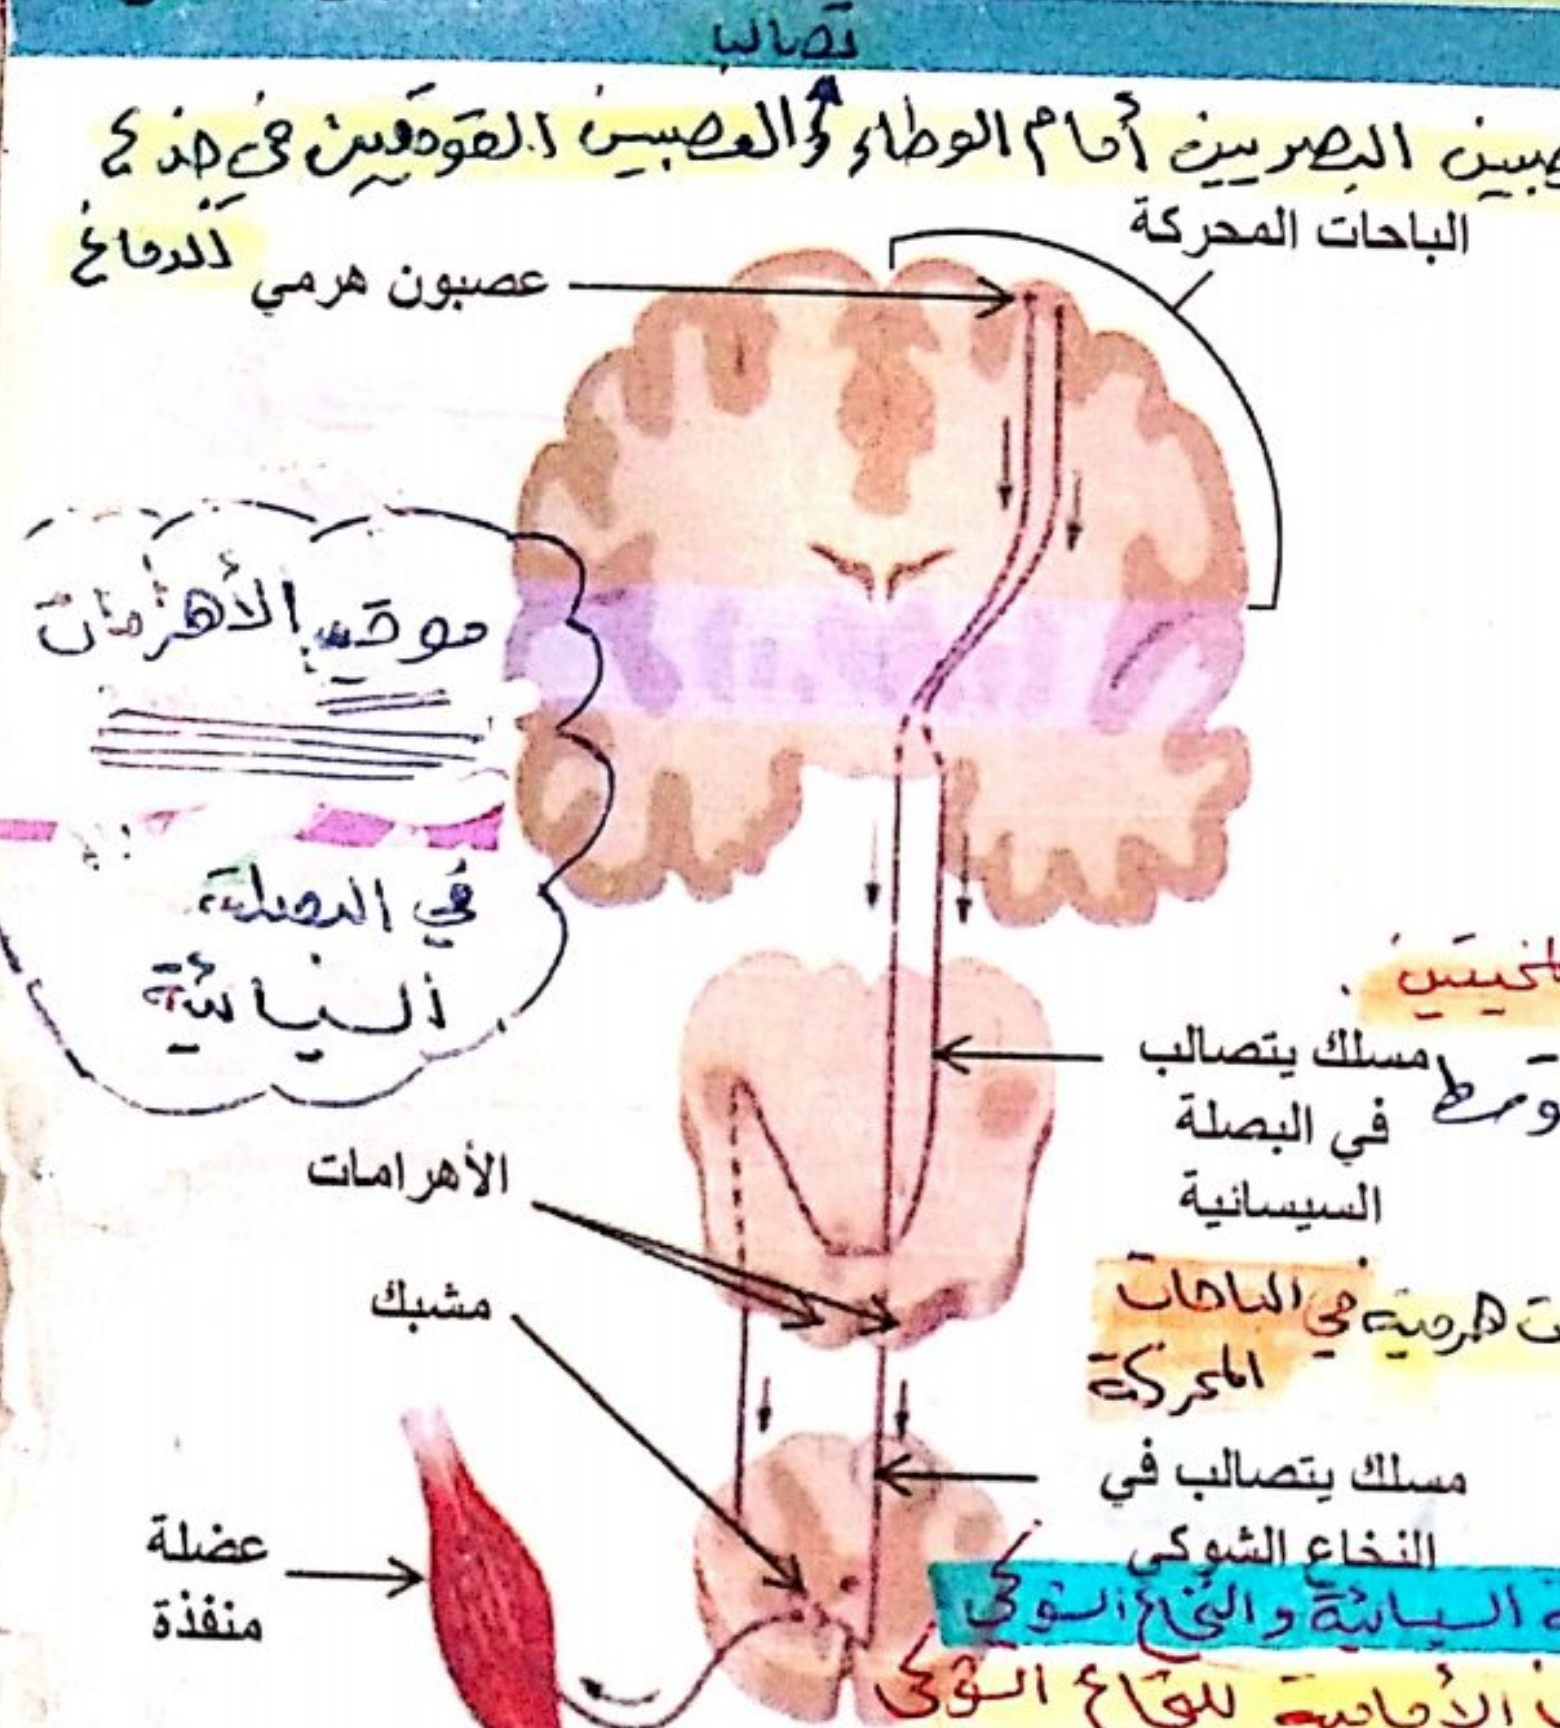 تصالب
البصريين أمام الوطاء والعصبين القوقعيين في جذع
الدماغ
الباحات المحركة
عصبون هرمي
موقع الأهرامات
في البصلة
السيسائية
مسلك يتصالب
في البصلة
السيسانية
الأهرامات
هرمية في الباحات
المحركة
مشبك
مسلك يتصالب في
النخاع الشوكي
عضلة
منفذة
السيسائية والنخاع الشوكي
الأمامية للنخاع الشوكي